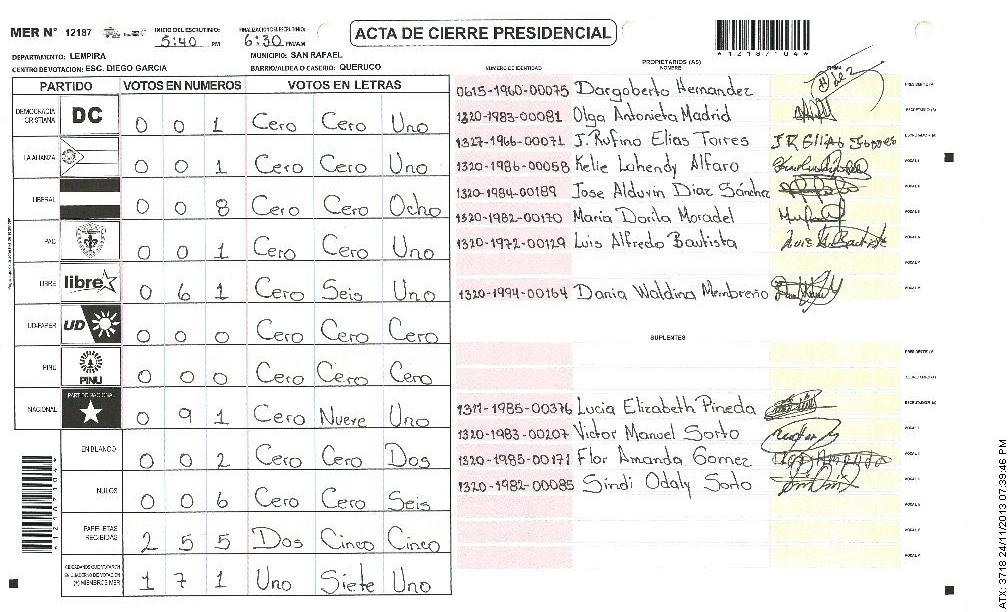 MER N° 12187
INICIO DEL ESCRUTINIO: 5:40 PM
FINALIZACION DEL ESCRUTINIO: 6:30 PM/AM
ACTA DE CIERRE PRESIDENCIAL
*12187104*
DEPARTAMENTO: LEMPIRA
MUNICIPIO: SAN RAFAEL
CENTRO DE VOTACION: ESC. DIEGO GARCIA
BARRIO/ALDEA O CASERIO: QUERUCO
PARTIDO VOTOS EN NUMEROS VOTOS EN LETRAS
DEMOCRACIA CRISTIANA DC 0 0 1 Cero Cero Uno
LA ALIANZA 0 0 1 Cero Cero Uno
LIBERAL 0 0 8 Cero Cero Ocho
PAC 0 0 1 Cero Cero Uno
LIBRE libre 0 6 1 Cero Seis Uno
UD-FAPER UD 0 0 0 Cero Cero Cero
PINU PINU 0 0 0 Cero Cero Cero
NACIONAL PARTIDO NACIONAL 0 9 1 Cero Nueve Uno
EN BLANCO 0 0 2 Cero Cero Dos
NULOS 0 0 6 Cero Cero Seis
PAPELETAS RECIBIDAS 2 5 5 Dos Cinco Cinco
CIUDADANOS QUE VOTARON EN CUADERNO DE VOTACION (+) MIEMBROS MER 1 7 1 Uno Siete Uno
PROPIETARIOS (AS)
NUMERO DE IDENTIDAD NOMBRE FIRMA
0615-1960-00075 Dargoberto Hernandez PRESIDENTE (A)
1320-1983-00081 Olga Antonieta Madrid SECRETARIO (A)
1327-1966-00071 J. Rufino Elias Torres J R Elias Torres ESCRUTADOR (A)
1320-1986-00058 Kelie Lohendy Alfaro VOCAL I
1320-1984-00189 Jose Alduvin Diaz Sánchez
1320-1982-00170 Maria Dorila Moradel
1320-1972-00129 Luis Alfredo Bautista Luis A Bautista
1320-1994-00164 Dania Waldina Membreño
SUPLENTES
PRESIDENTE (A)
SECRETARIO (A)
1311-1985-00376 Lucia Elizabeth Pineda ESCRUTADOR (A)
1320-1983-00207 Victor Manuel Sorto
1320-1985-00171 Flor Amanda Gomez
1320-1982-00085 Sindi Odaly Sorto
*12187104*
ATX: 3718 24/11/2013 07:39:46 PM